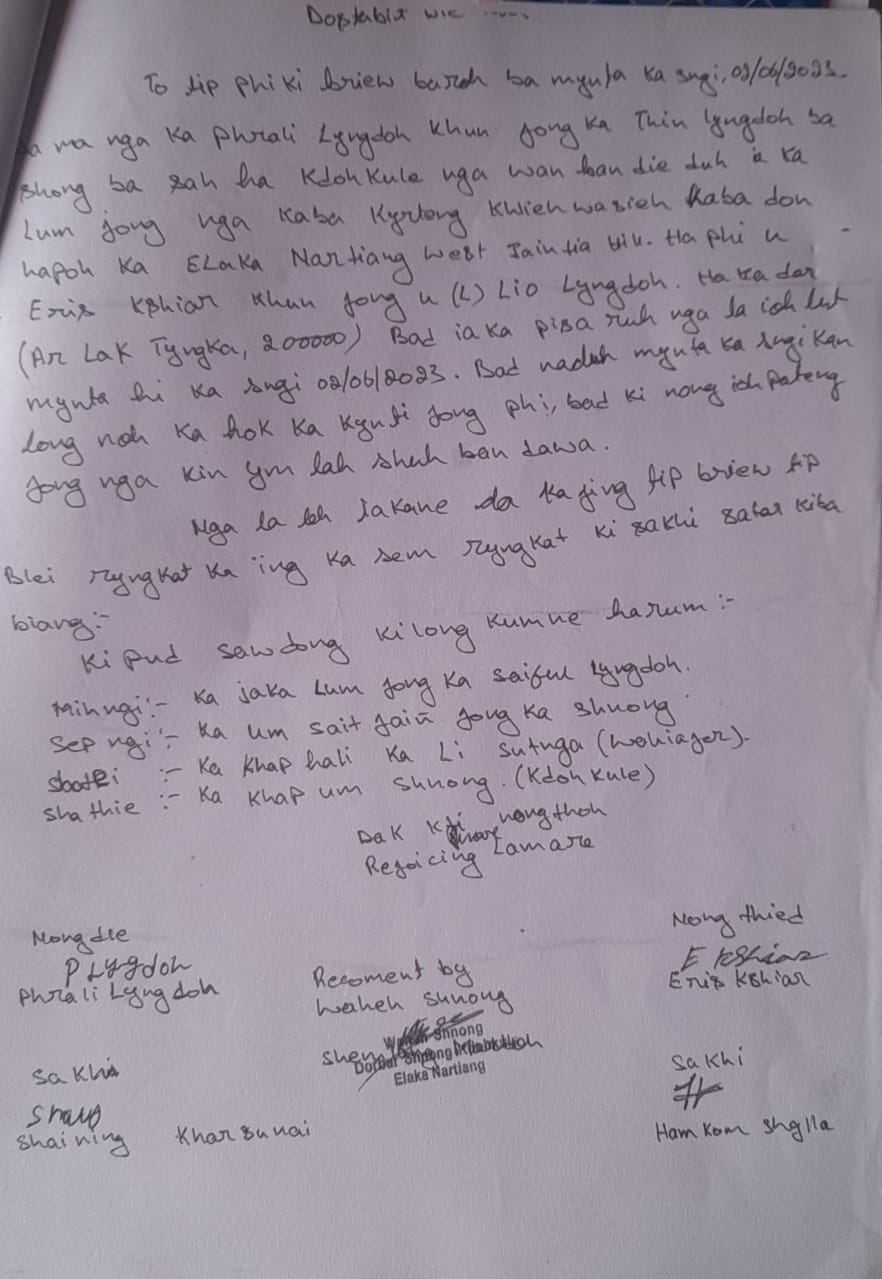 Dostabit wie ......
To tip phi ki briew baroh ba mynta ka sngi, 02/06/2023
ma nga ka Phrali Lyngdoh khun jong ka Thin Lyngdoh ba
shong ba sah ha Kdohkule nga wan ban die duh ia ka
Lum jong nga kaba kyrteng Kwieh wasieh kaba don
hapoh ka ELaka Nartiang West Jaintia Hill. Ha phi u
Eris Kshiar khun jong u (L) Lio Lyngdoh. Ha ka dor
(Ar Lak Tyngka, 200000) Bad ia ka pisa ruh nga la ioh lut
mynta hi ka sngi 02/06/2023. Bad naduh mynta ka sngi kan
long noh ka hok ka kynti jong phi, bad ki nong ioh pateng
jong nga kin ym lah shuh ban dawa.
Nga la leh iakane da ka jing tip briew tip
Blei ryngkat ka ïng ka sem ryngkat ki sakhi satar kiba
biang:-
Ki pud sawdong ki long kumne harum :-
Mihngi :- Ka jaka Lum jong ka Saiful Lyngdoh.
Sep ngi :- Ka um sait jaiñ jong ka shnong
:- Ka khap hali ka Li Sutnga (Wahiajer).
Sha thie :- Ka khap um shnong. (Kdohkule)
Dak kti nongthoh
Rejoicing Lamare
Nongdie
P Lygdoh
Phrali Lyngdoh
Nong thied
E Kshiar
Eris Kshiar
Recoment by
Waheh Shnong
Waheh Shnong
Dorbar Shnong
Elaka Nartiang
Sakhi
Shaining Kharsunai
Sakhi
Ham Kom Shylla